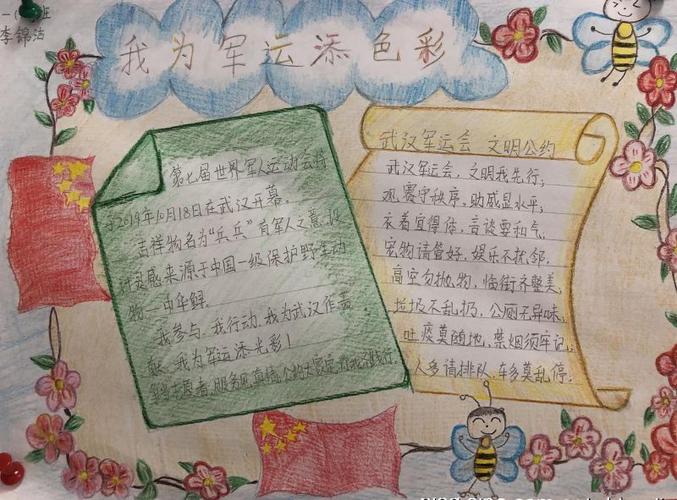 一(
)班
李锦洁
我为军运添色彩
第七届世界军人运动会将
于2019年10月18日在武汉开幕。
吉祥物名为“兵兵”首军人之意,设
计灵感来源于中国一级保护野生动
物—中华鲟。
我参与、我行动、我为武汉作贡
献、我为军运添光彩!
武汉军运会 文明公约
武汉军运会,文明我先行;
观赛守秩序,助威显水平;
衣着宜得体,言谈要和气;
宠物请管好,娱乐不扰邻;
高空勿抛物,临街齐整美;
垃圾不乱扔,公厕无异味;
吐痰莫随地,禁烟须牢记;
人多请排队,车多莫乱停。